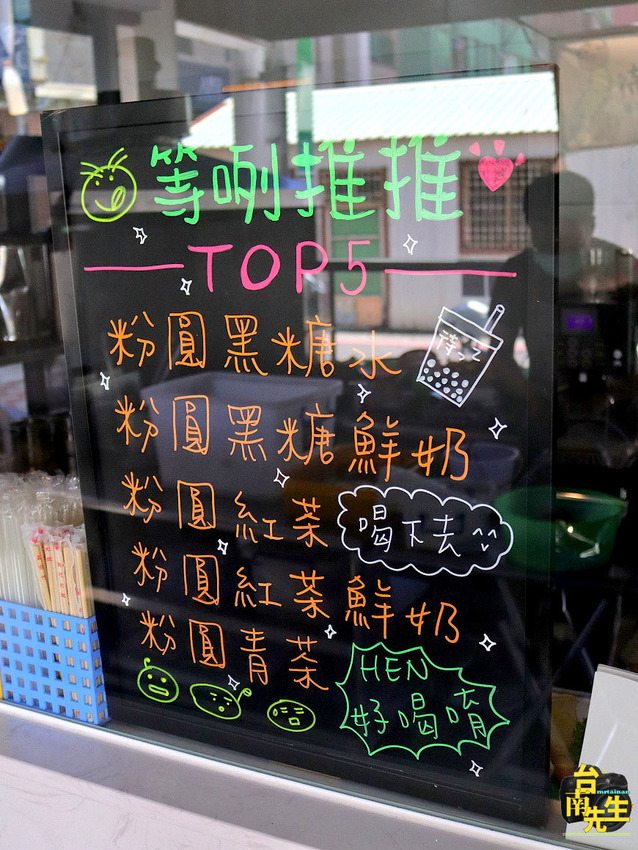 等咧推推
TOP5
粉圓黑糖水
等咧
粉圓黑糖鮮奶
粉圓紅茶
喝下去
粉圓紅茶鮮奶
粉圓青茶
HEN
好喝唷
台南先生
mrtainan